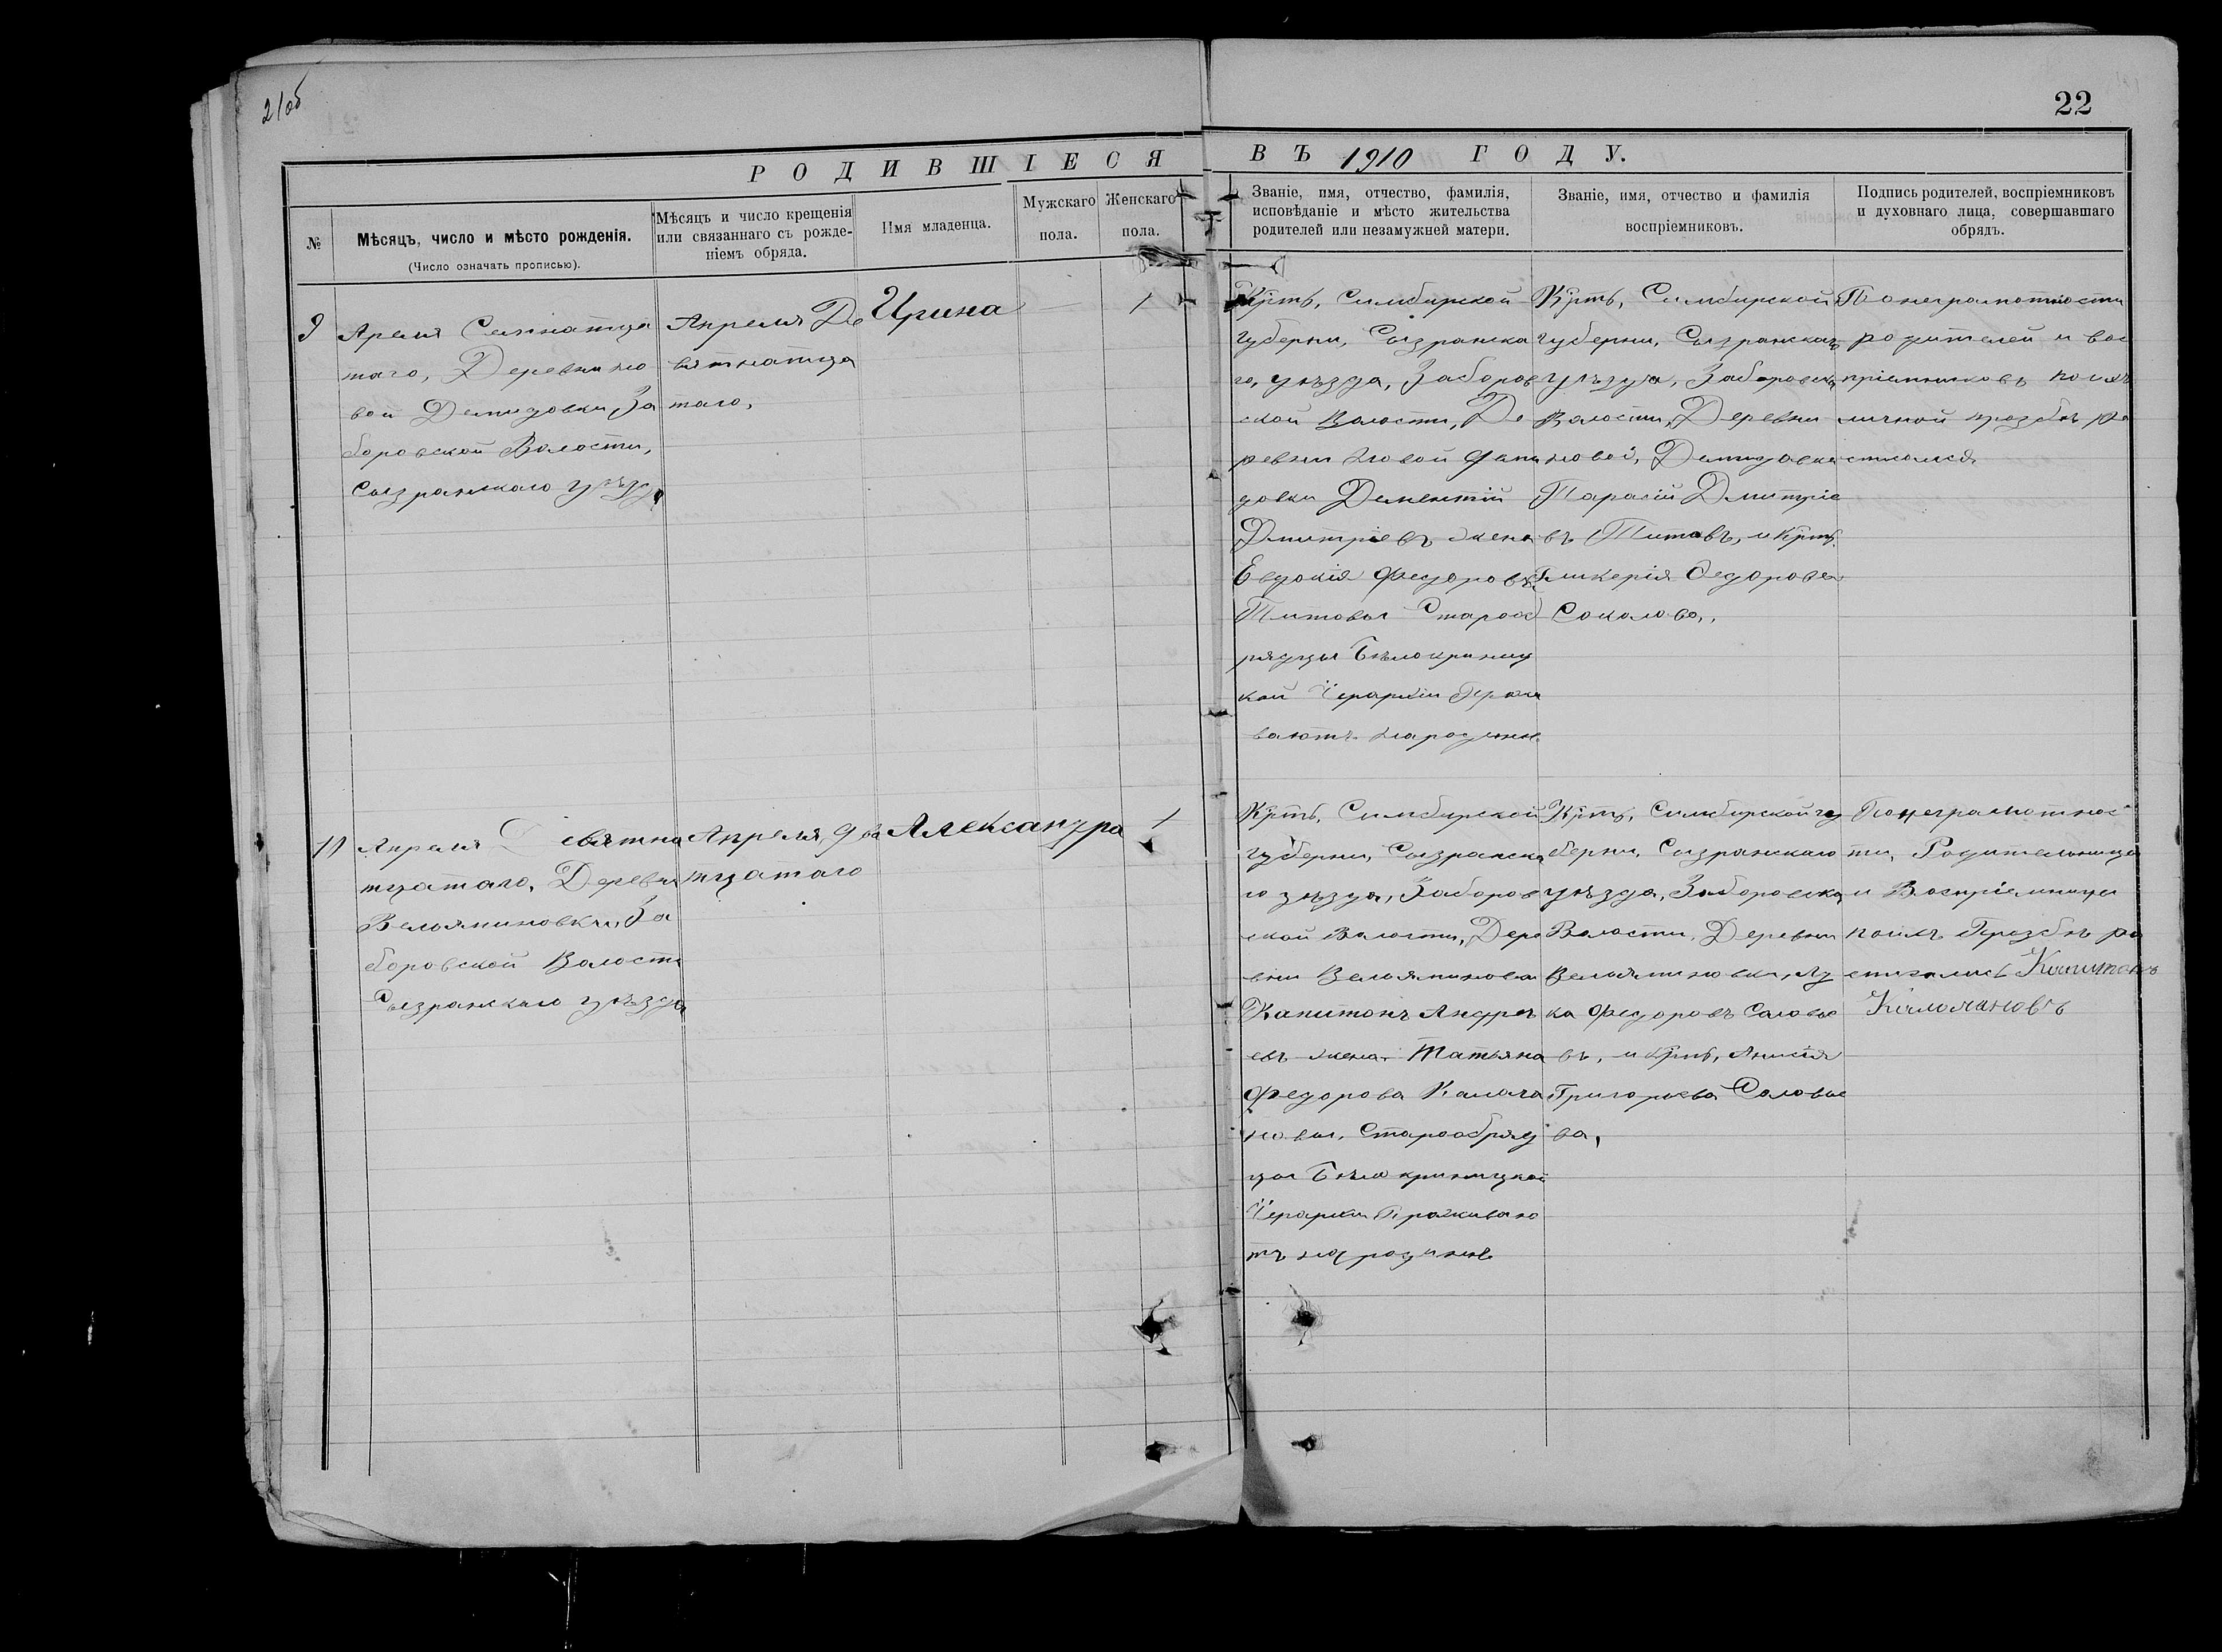 21об
22
РОДИВШІЕСЯ ВЪ 1910 ГОДУ.
№
Мѣсяцъ, число и мѣсто рожденія.
(Число означать прописью).
Мѣсяцъ и число крещенія
или связаннаго съ рожде-
ніемъ обряда.
Имя младенца.
Мужскаго
пола.
Женскаго
пола.
Званіе, имя, отчество, фамилія,
исповѣданіе и мѣсто жительства
родителей или незамужней матери.
Званіе, имя, отчество и фамилія
воспріемниковъ.
Подпись родителей, воспріемниковъ
и духовнаго лица, совершавшаго
обрядъ.
9
Апреля Семнатца
таго, Деревни но
вой Демидовки За
боровской Волости,
Сызранскаго уѣзда
Апреля Де
вятнатца
таго,
Ирина
1
Крть, Симбирской
губерни, Сызранска
го, уѣзда, Заборов
ской Волости, Де
ревни Новой Деми
довки Дементій
Дмитріевъ жена
Евдокія Федорова
Титовы Старооб
рядцы Бѣлокриниц
кой Іерархіи Прожи
ваютъ народинѣ
Крть, Симбирской
губерни, Сызранскаго
уѣзда, Заборовской
Волости, Деревни
новой, Демидовки
Парасій Дмитріе
въ Титовъ, и Крть.
Гликерія Федорова
Соколова,,
Понеграмотности
родителей и вос
пріемниковъ поихъ
личной прозбѣ ра
списался
10
Апреля Девятна
тцатаго, Деревни
Вельяминовки, За
боровской Волости
Сызранскаго уѣзда
Апреля, Девятна
тцатаго
Александра
1
Крть, Симбирской
губерни, Сызранска
го уѣзда, Заборов
ской Волости, Дере
вни Вельяминовки
Капитонъ Андре
евъ жена Татьяна
Федорова Калача
новы, Старообряд
цы Бѣлокриницкой
Іерархіи Проживаю
тъ на родинѣ
Крть, Симбирской гу
берни, Сызранскаго
уѣзда, Заборовской
Волости, Деревни
Вельяминовки, Лу
ка Федоровъ Соловье
въ, и Крть, Анисія
Григорьева Соловье
ва,
Понеграмотнос
ти, Родительницы
и Воспріемницы
поихъ Прозбѣ ра
списались Капитонъ
Калачановъ